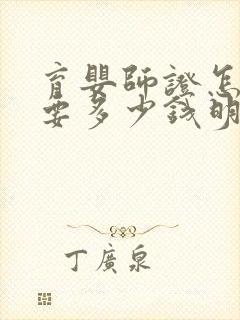 育嬰師證怎
要多少錢明
丁廣泉